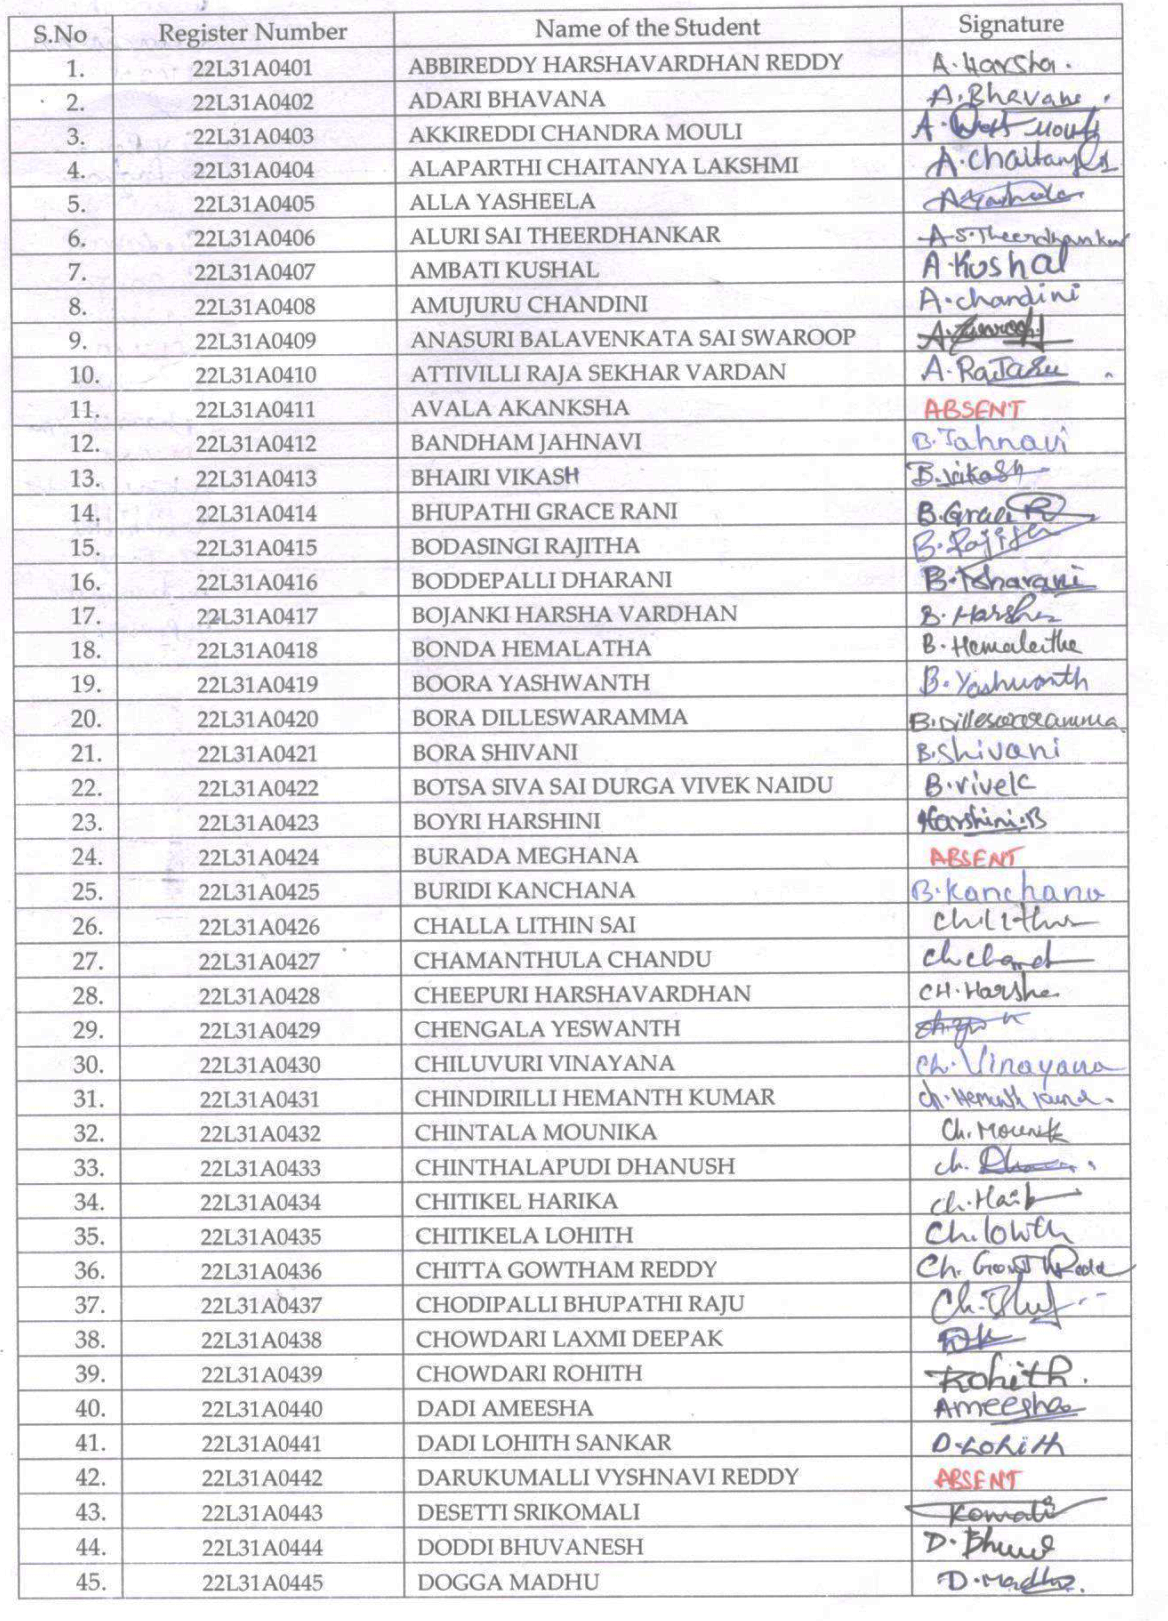 S.No Register Number Name of the Student Signature
1. 22L31A0401 ABBIREDDY HARSHAVARDHAN REDDY A. Harsha.
2. 22L31A0402 ADARI BHAVANA A. Bhavana
3. 22L31A0403 AKKIREDDI CHANDRA MOULI A. Mouli
4. 22L31A0404 ALAPARTHI CHAITANYA LAKSHMI A. Chaitanya
5. 22L31A0405 ALLA YASHEELA
6. 22L31A0406 ALURI SAI THEERDHANKAR A. S. Theerdhankar
7. 22L31A0407 AMBATI KUSHAL A. Kushal
8. 22L31A0408 AMUJURU CHANDINI A. chandini
9. 22L31A0409 ANASURI BALAVENKATA SAI SWAROOP
10. 22L31A0410 ATTIVILLI RAJA SEKHAR VARDAN
11. 22L31A0411 AVALA AKANKSHA ABSENT
12. 22L31A0412 BANDHAM JAHNAVI B. Jahnavi
13. 22L31A0413 BHAIRI VIKASH B. Vikash
14. 22L31A0414 BHUPATHI GRACE RANI B. Grace R
15. 22L31A0415 BODASINGI RAJITHA B. Rajitha
16. 22L31A0416 BODDEPALLI DHARANI B. Dharani
17. 22L31A0417 BOJANKI HARSHA VARDHAN B. Harsha
18. 22L31A0418 BONDA HEMALATHA B. Hemalatha
19. 22L31A0419 BOORA YASHWANTH B. Yashwanth
20. 22L31A0420 BORA DILLESWARAMMA B. Dilleswaramma
21. 22L31A0421 BORA SHIVANI B. Shivani
22. 22L31A0422 BOTSA SIVA SAI DURGA VIVEK NAIDU B. Vivek
23. 22L31A0423 BOYRI HARSHINI Harshini. B
24. 22L31A0424 BURADA MEGHANA ABSENT
25. 22L31A0425 BURIDI KANCHANA B. Kanchana
26. 22L31A0426 CHALLA LITHIN SAI
27. 22L31A0427 CHAMANTHULA CHANDU
28. 22L31A0428 CHEEPURI HARSHAVARDHAN CH. Harsha
29. 22L31A0429 CHENGALA YESWANTH
30. 22L31A0430 CHILUVURI VINAYANA Ch. Vinayana
31. 22L31A0431 CHINDIRILLI HEMANTH KUMAR Ch. Hemanth
32. 22L31A0432 CHINTALA MOUNIKA Ch. Mounika
33. 22L31A0433 CHINTHALAPUDI DHANUSH
34. 22L31A0434 CHITIKEL HARIKA
35. 22L31A0435 CHITIKELA LOHITH Ch. lohith
36. 22L31A0436 CHITTA GOWTHAM REDDY
37. 22L31A0437 CHODIPALLI BHUPATHI RAJU
38. 22L31A0438 CHOWDARI LAXMI DEEPAK
39. 22L31A0439 CHOWDARI ROHITH Rohith.
40. 22L31A0440 DADI AMEESHA Ameesha
41. 22L31A0441 DADI LOHITH SANKAR D. Lohith
42. 22L31A0442 DARUKUMALLI VYSHNAVI REDDY ABSENT
43. 22L31A0443 DESETTI SRIKOMALI Komali
44. 22L31A0444 DODDI BHUVANESH
45. 22L31A0445 DOGGA MADHU D. Madhu.